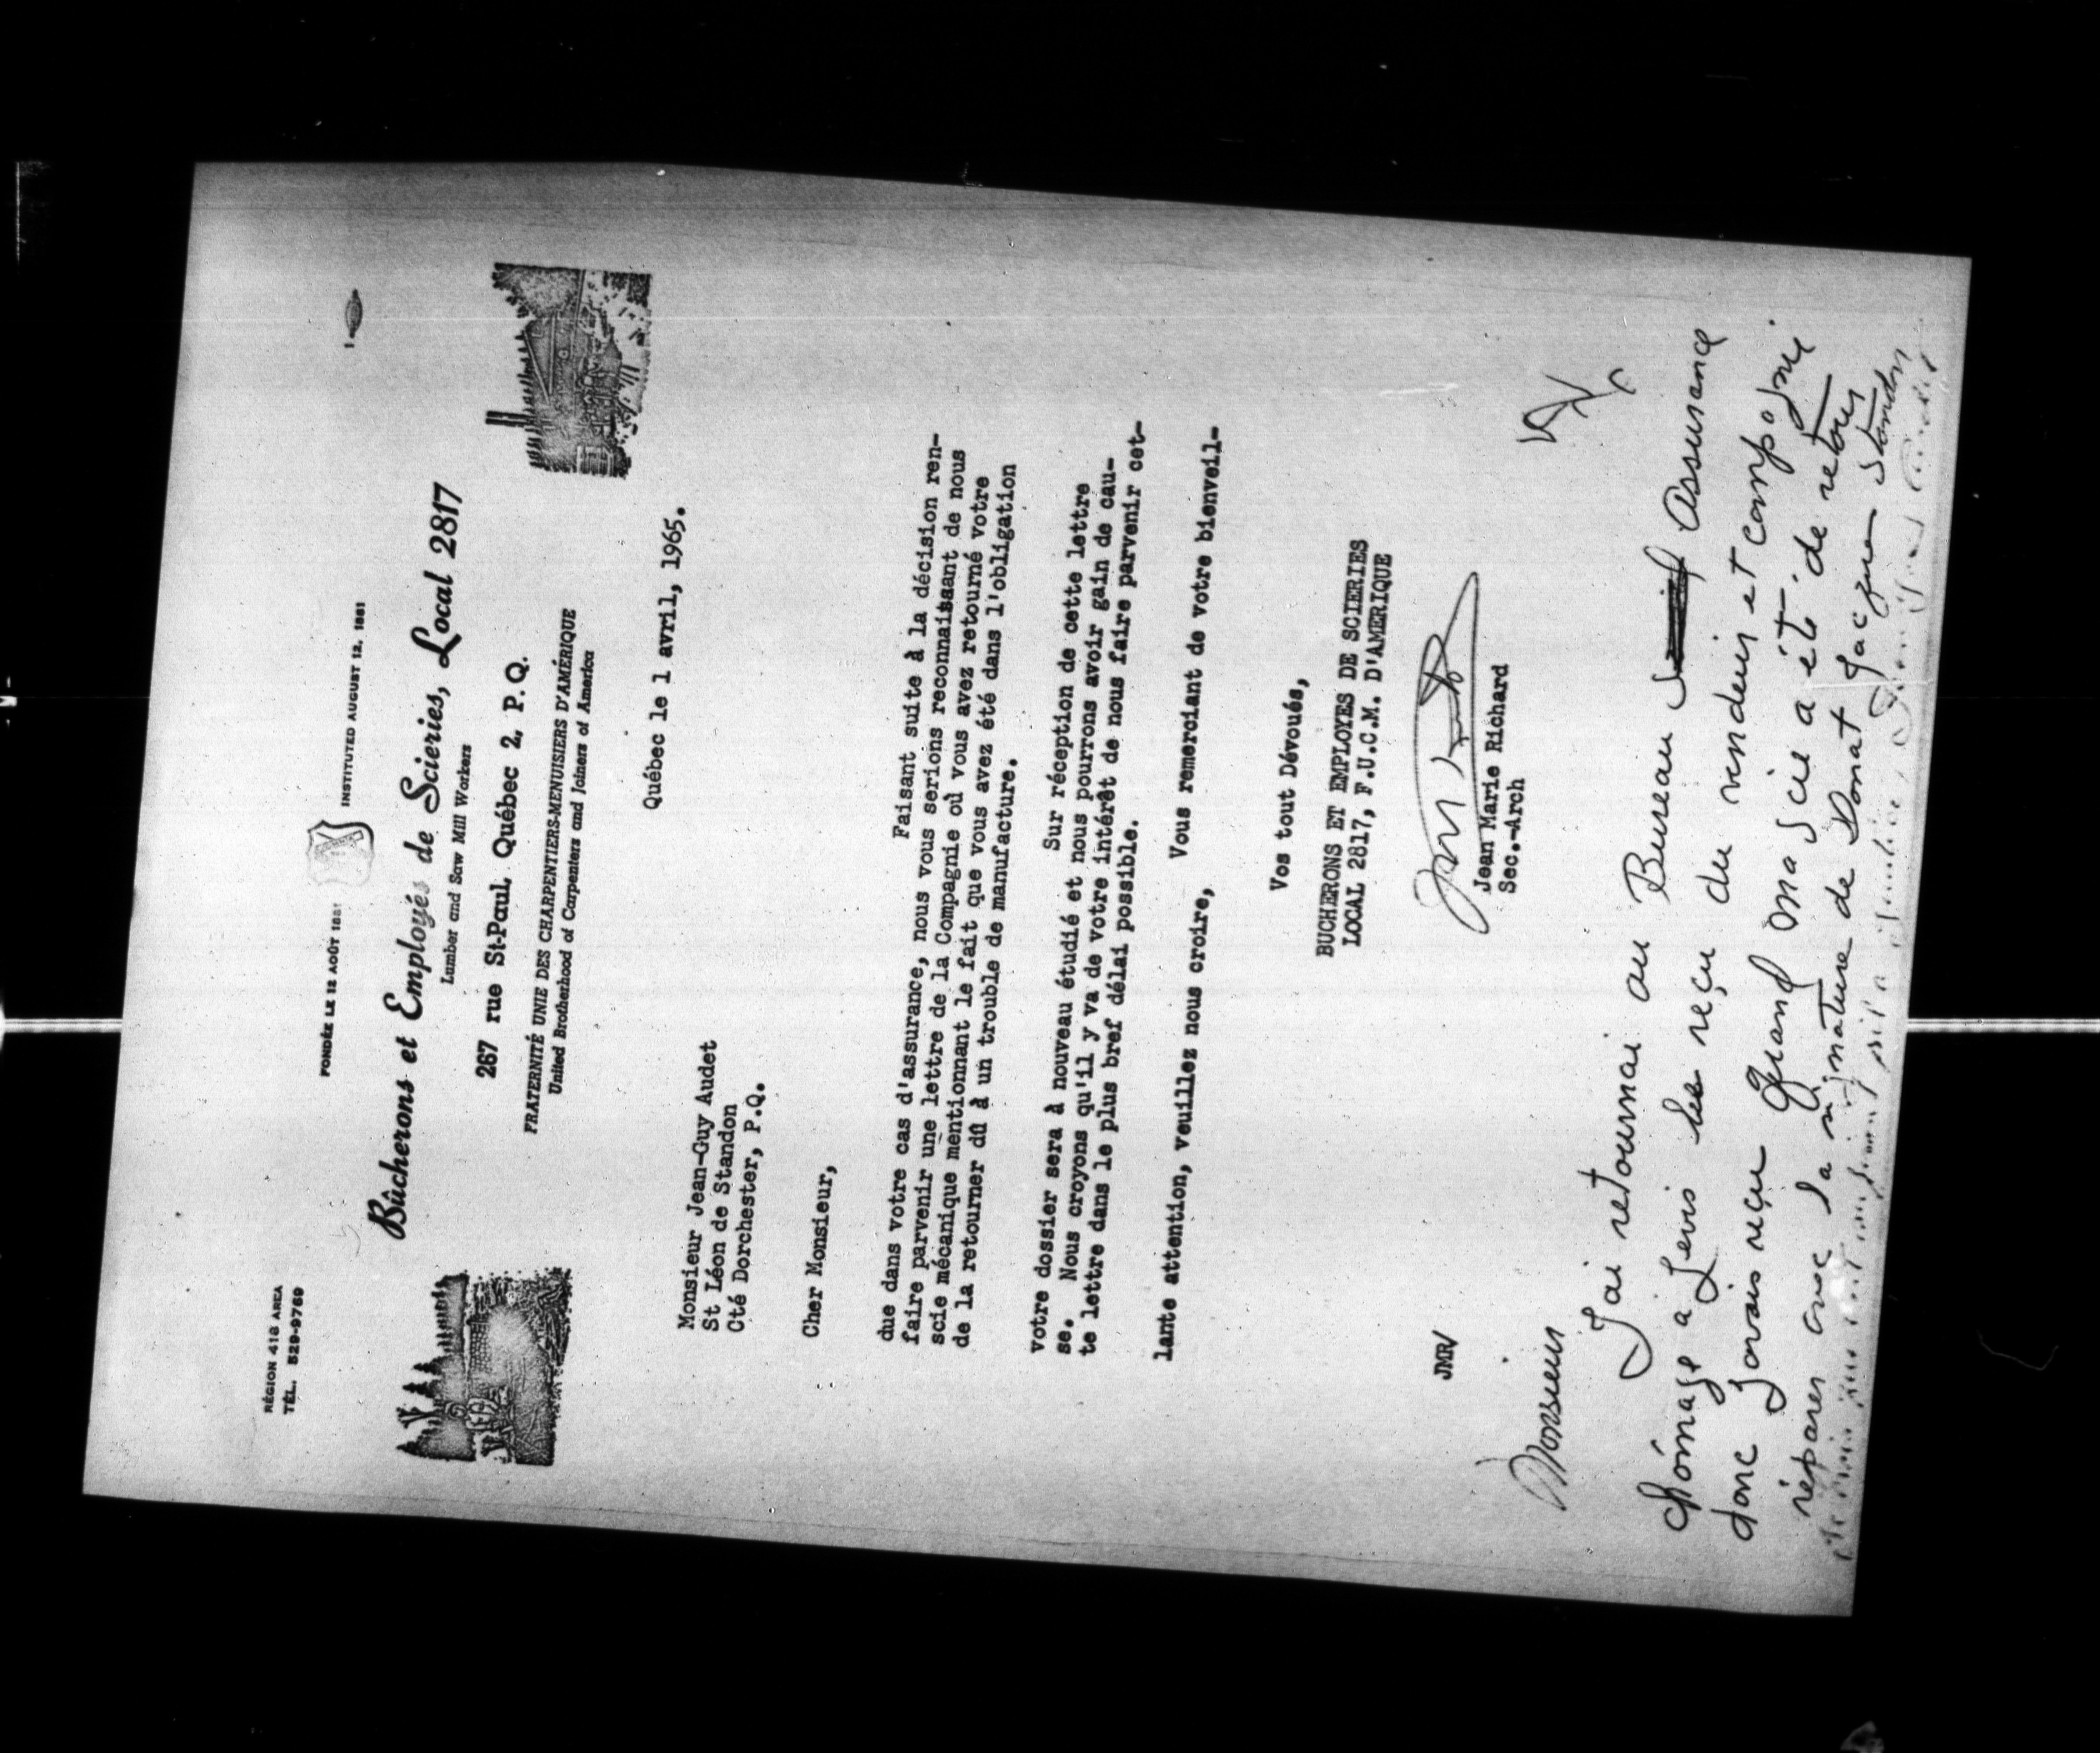 RÉGION 418 AREA
TÉL. 529-9769
FONDÉE LE 12 AOÛT 1881
INSTITUTED AUGUST 12, 1881
Bûcherons et Employés de Scieries, Local 2817
Lumber and Saw Mill Workers
267 rue St-Paul, Québec 2, P.Q.
FRATERNITÉ UNIE DES CHARPENTIERS-MENUISIERS D'AMÉRIQUE
United Brotherhood of Carpenters and Joiners of America
Québec le 1 avril, 1965.
Monsieur Jean-Guy Audet
St Léon de Standon
Cté Dorchester, P.Q.
Cher Monsieur,
Faisant suite à la décision ren-
due dans votre cas d'assurance, nous vous serions reconnaissant de nous
faire parvenir une lettre de la Compagnie où vous avez retourné votre
scie mécanique mentionnant le fait que vous avez été dans l'obligation
de la retourner dû à un trouble de manufacture.
Sur réception de cette lettre
votre dossier sera à nouveau étudié et nous pourrons avoir gain de cau-
se. Nous croyons qu'il y va de votre intérêt de nous faire parvenir cet-
te lettre dans le plus bref délai possible.
Vous remerciant de votre bienveil-
lante attention, veuillez nous croire,
Vos tout Dévoués,
BUCHERONS ET EMPLOYES DE SCIERIES
LOCAL 2817, F.U.C.M. D'AMERIQUE
Jean Marie Richard
Sec.-Arch
JMR/
Monsieur
J'ai retournai au Bureau Assurance
chômage a Levis les reçu du vendeur et compagnie
donc J'avais reçu Quand ma scie a été de retour
réparer avec la signature de Donat Jacques Standon